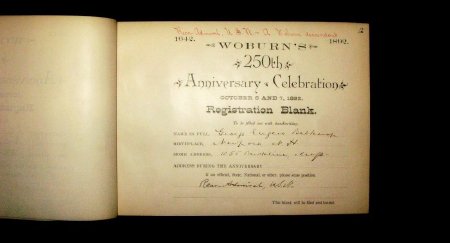 Rear Admiral, U.S.N. - A Woburn descendant
2
1642. 1892.
WOBURN'S
250th
Anniversary Celebration
OCTOBER 6 AND 7, 1892.
Registration Blank.
To be filled out with handwriting.
NAME IN FULL, George Eugene Belknap
BIRTHPLACE, Newport N.H.
HOME ADDRESS, Brookline Mass
ADDRESS DURING THE ANNIVERSARY
If an official, State, National, or other, please name position
Rear Admiral, U.S.N.
This blank will be filed and bound.